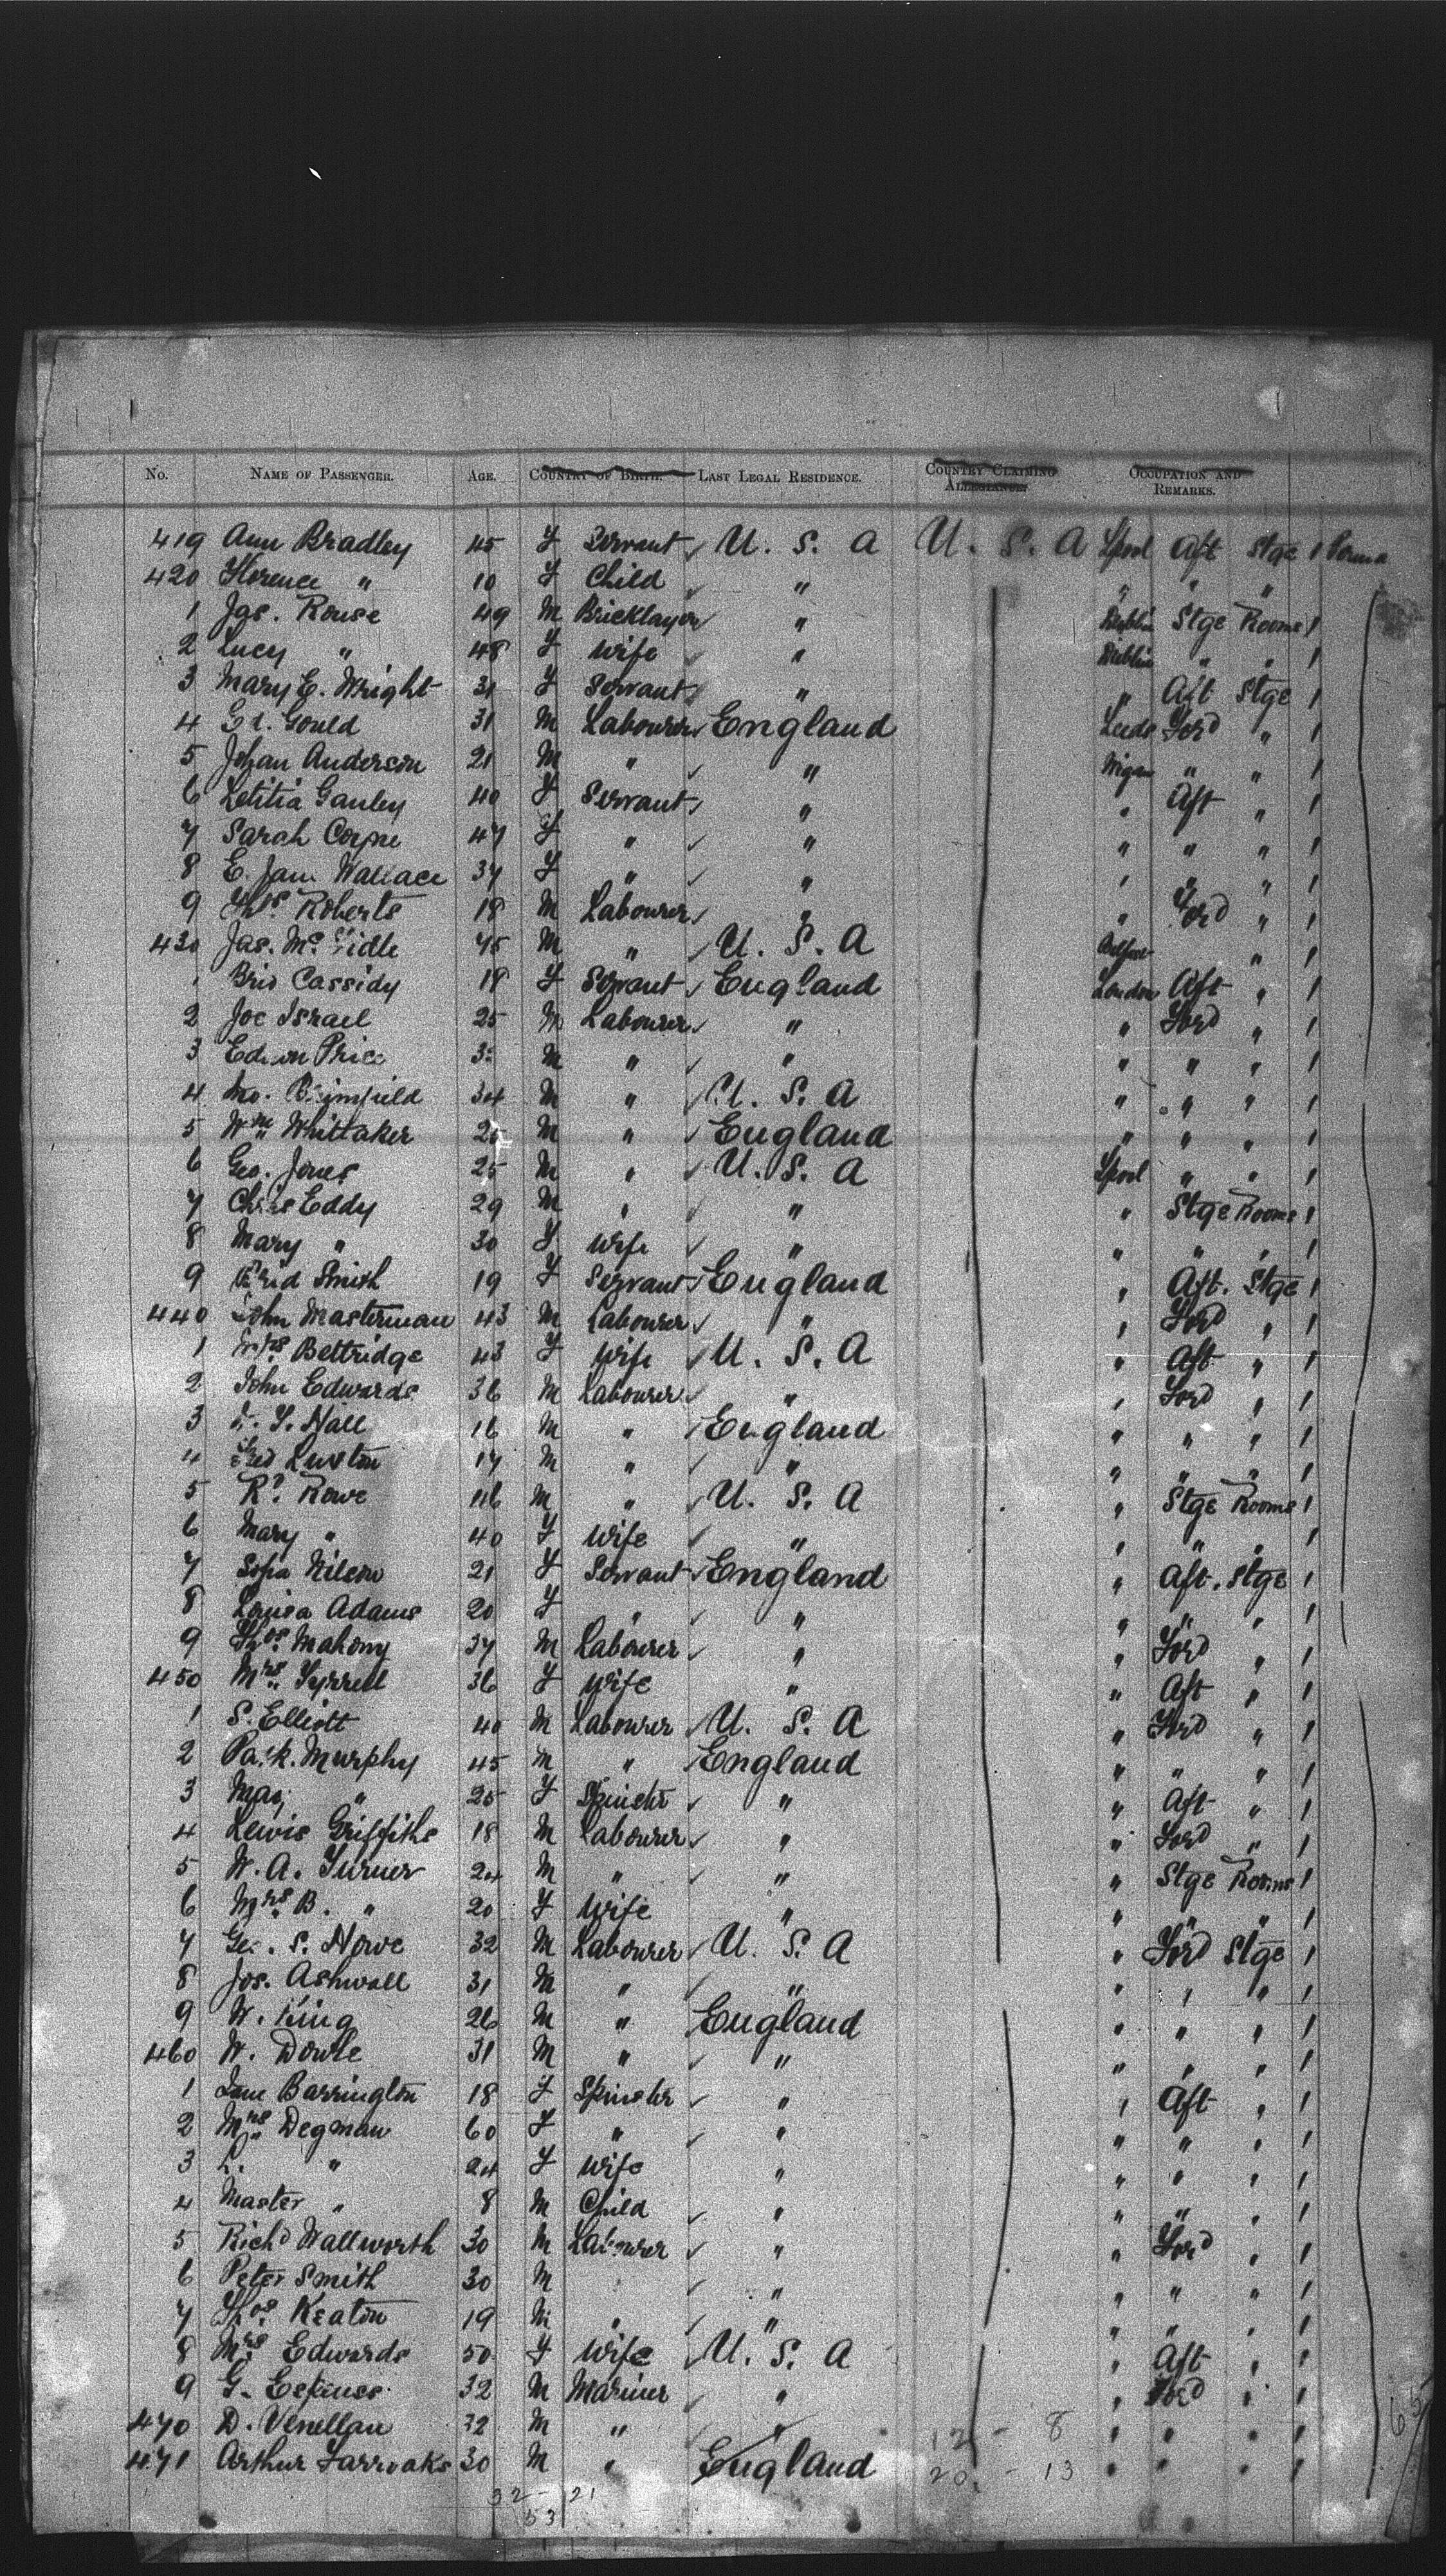 No. NAME OF PASSENGER. AGE. COUNTRY OF BIRTH. LAST LEGAL RESIDENCE. COUNTRY CLAIMING ALLEGIANCE. OCCUPATION AND REMARKS.
419 Ann Bradley 45 F Servant U. S. A U. S. A Lpool Aft Stge 1
420 Florence " 10 F Child " " " "
1 Jas. Rouse 49 M Bricklayer " Dublin Stge Rooms 1
2 Lucy " 48 F Wife " Dublin " " 1
3 Mary E. Wright 31 F Servant " " Aft Stge 1
4 Gould 31 M Labourer England Leeds Ford " 1
5 Johan Anderson 21 M " " Wigan " " 1
6 Letitia Ganley 40 F Servant " " Aft " 1
7 Sarah Coyne 47 F " " " " " 1
8 E. Jane Wallace 37 F " " " " " 1
9 Thos. Roberts 18 M Labourer " " Ford " 1
430 Jas. Mc 45 M " U. S. A Belfast " 1
1 Brid Cassidy 19 F Servant England London Aft " 1
2 Joe Israel 25 M Labourer " " Ford " 1
3 Edwin Price M " " " " " 1
4 34 M " U. S. A " " " 1
5 Wm Whittaker 25 M " England " " " 1
6 Geo. Jones 25 M " U. S. A Lpool " " 1
7 Chas Eddy 29 M " " " Stge Rooms 1
8 Mary " 30 F Wife " " " " 1
9 Brid Smith 19 F Servant England " Aft. Stge 1
440 John Masterman 43 M Labourer " " Ford " 1
1 Mrs. Bettridge 43 F Wife U. S. A " Aft " 1
2 John Edwards 36 M Labourer " " Ford " 1
3 Hall 16 M " England " " " 1
4 Fred Luxton 17 M " " " " " 1
5 Rd. Rowe 46 M " U. S. A " Stge Rooms 1
6 Mary " 40 F Wife " " " " 1
7 Sofia Nilson 21 F Servant England " Aft. Stge 1
8 Louisa Adams 20 F " " " " " 1
9 Thos. Mahony 37 M Labourer " " Ford " 1
450 Mrs. Tyrrell 36 F Wife " " Aft " 1
1 S. Elliott 40 M Labourer U. S. A " Ford " 1
2 Patk. Murphy 45 M " England " " " 1
3 " 25 F Spinster " " Aft " 1
4 Lewis Griffiths 18 M Labourer " " Ford " 1
5 W. A. Turner 24 M " " " Stge Rooms 1
6 Mrs. B. " 20 F Wife " " " " 1
7 Geo. S. Howe 32 M Labourer U. S. A " Ford Stge 1
8 Jos. Ashwell 31 M " " " " " 1
9 W. King 26 M " England " " " 1
460 W. Dowle 31 M " " " " " 1
1 Jane Barrington 18 F Spinster " " Aft " 1
2 Mrs. Degman 60 F " " " " " 1
3 L. " 24 F Wife " " " " 1
4 Master " 8 M Child " " " " 1
5 Richd Wallworth 30 M Labourer " " Ford " 1
6 Peter Smith 30 M " " " " 1
7 Thos. Keaton 19 M " " " " " 1
8 Mrs. Edwards 50 F Wife U. S. A " Aft " 1
9 G. 32 M Mariner " " Ford " 1
470 D. Venellan 32 M " " 12 - 8 " " " 1
471 Arthur 30 M " England 20 - 13 " " " 1
32 - 21
53